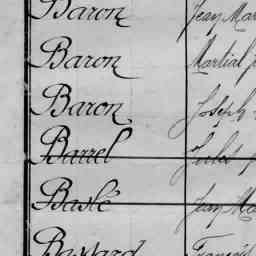 Baron Jean Mar
Baron Martial J
Baron Joseph
Barrel Jules
Baslé Jean Ma
Bastard François